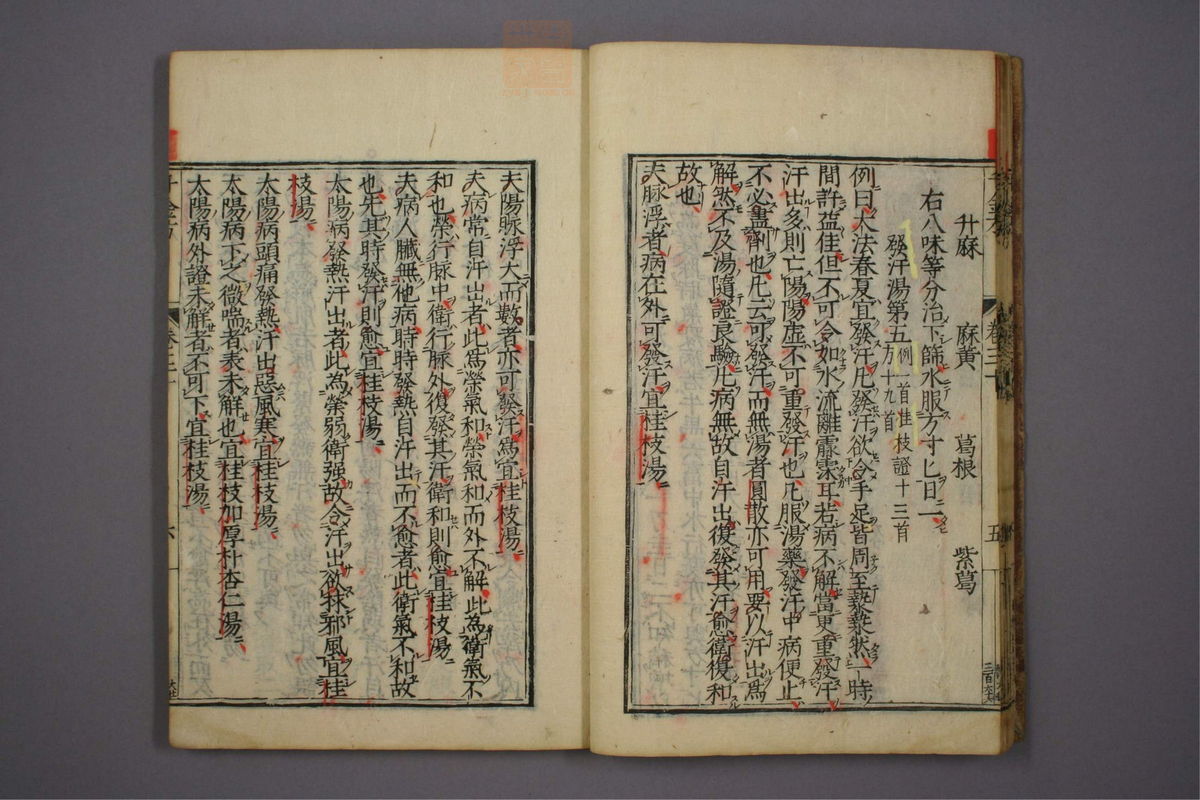 升麻 麻黄 葛根 紫葛
右八味等分治下篩水服方寸匕日二
發汗湯第五例一首桂枝證十三首
方十九首
例曰大法春夏宜發汗凡發汗欲令手足皆周至漐漐然一時
間許益佳但不可令如水流離霢霂耳若病不解當更重發汗
汗出多則亡陽陽虚不可重發汗也凡服湯藥發汗中病便止
不必盡劑也凡云可發汗而無湯者圓散亦可用要以汗出爲
解然不及湯隨證良驗凡病無故自汗出復發其汗愈衛復和
故也
夫脉浮者病在外可發汗宜桂枝湯
夫陽脉浮大而數者亦可發汗爲宜桂枝湯
夫病常自汗出者此爲榮氣和榮氣和而外不解此為衛氣不
和也榮行脉中衛行脉外復發其汗衛和則愈宜桂枝湯
夫病人臓無他病時時發熱自汗出而不愈者此衛氣不和故
也先其時發汗則愈宜桂枝湯
太陽病發熱汗出者此為榮弱衛强故令汗出欲抹邪風宜桂
枝湯
太陽病頭痛發熱汗出惡風寒宜桂枝湯
太陽病下之微喘者表未解也宜桂枝加厚朴杏仁湯
太陽病外證未解者不可下宜桂枝湯